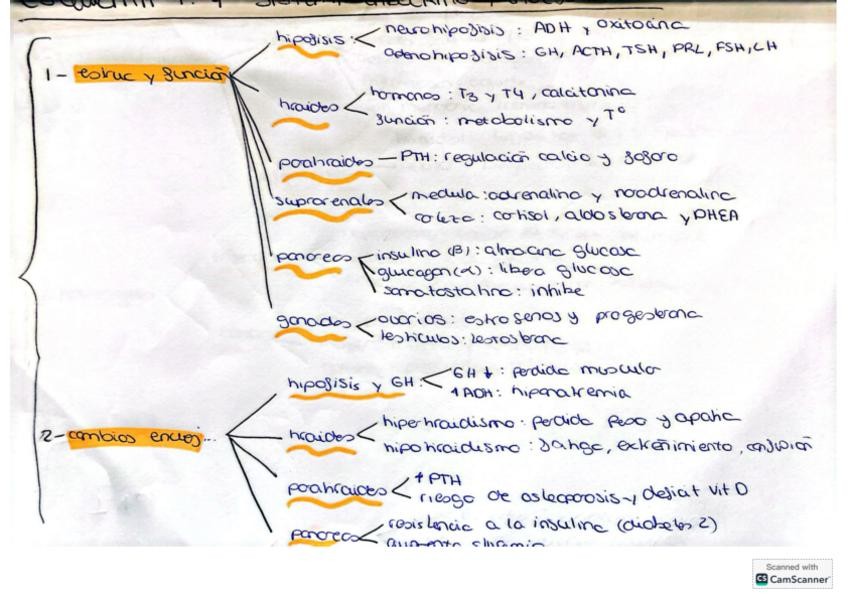 hipofisis: neurohipofisis : ADH y oxitocina
adenohipofisis : GH, ACTH, TSH, PRL, FSH, LH
1- estruc y función
tiroides hormonas : T3 y T4, calcitonina
función : metabolismo y Tº
paratiroides — PTH: regulación calcio y fosforo
suprarrenales medula : adrenalina y noadrenalina
corteza : cortisol, aldosterona y DHEA
pancreas insulina (β) : almacena glucosa
glucagon (α) : libera glucosa
somatostatina : inhibe
gonadas ovarios : estrogenos y progesterona
testiculos : testosterona
hipofisis y GH : GH ↓ : perdida muscular
↑ ADH : hiponatremia
2- cambios envej...
tiroides hipertiroidismo : perdida peso y apatia
hipotiroidismo : fatiga, extreñimiento, confusión
paratiroides ↑ PTH
riesgo de osteoporosis y deficit vit D
pancreas resistencia a la insulina (diabetes 2)
Scanned with
CS CamScanner